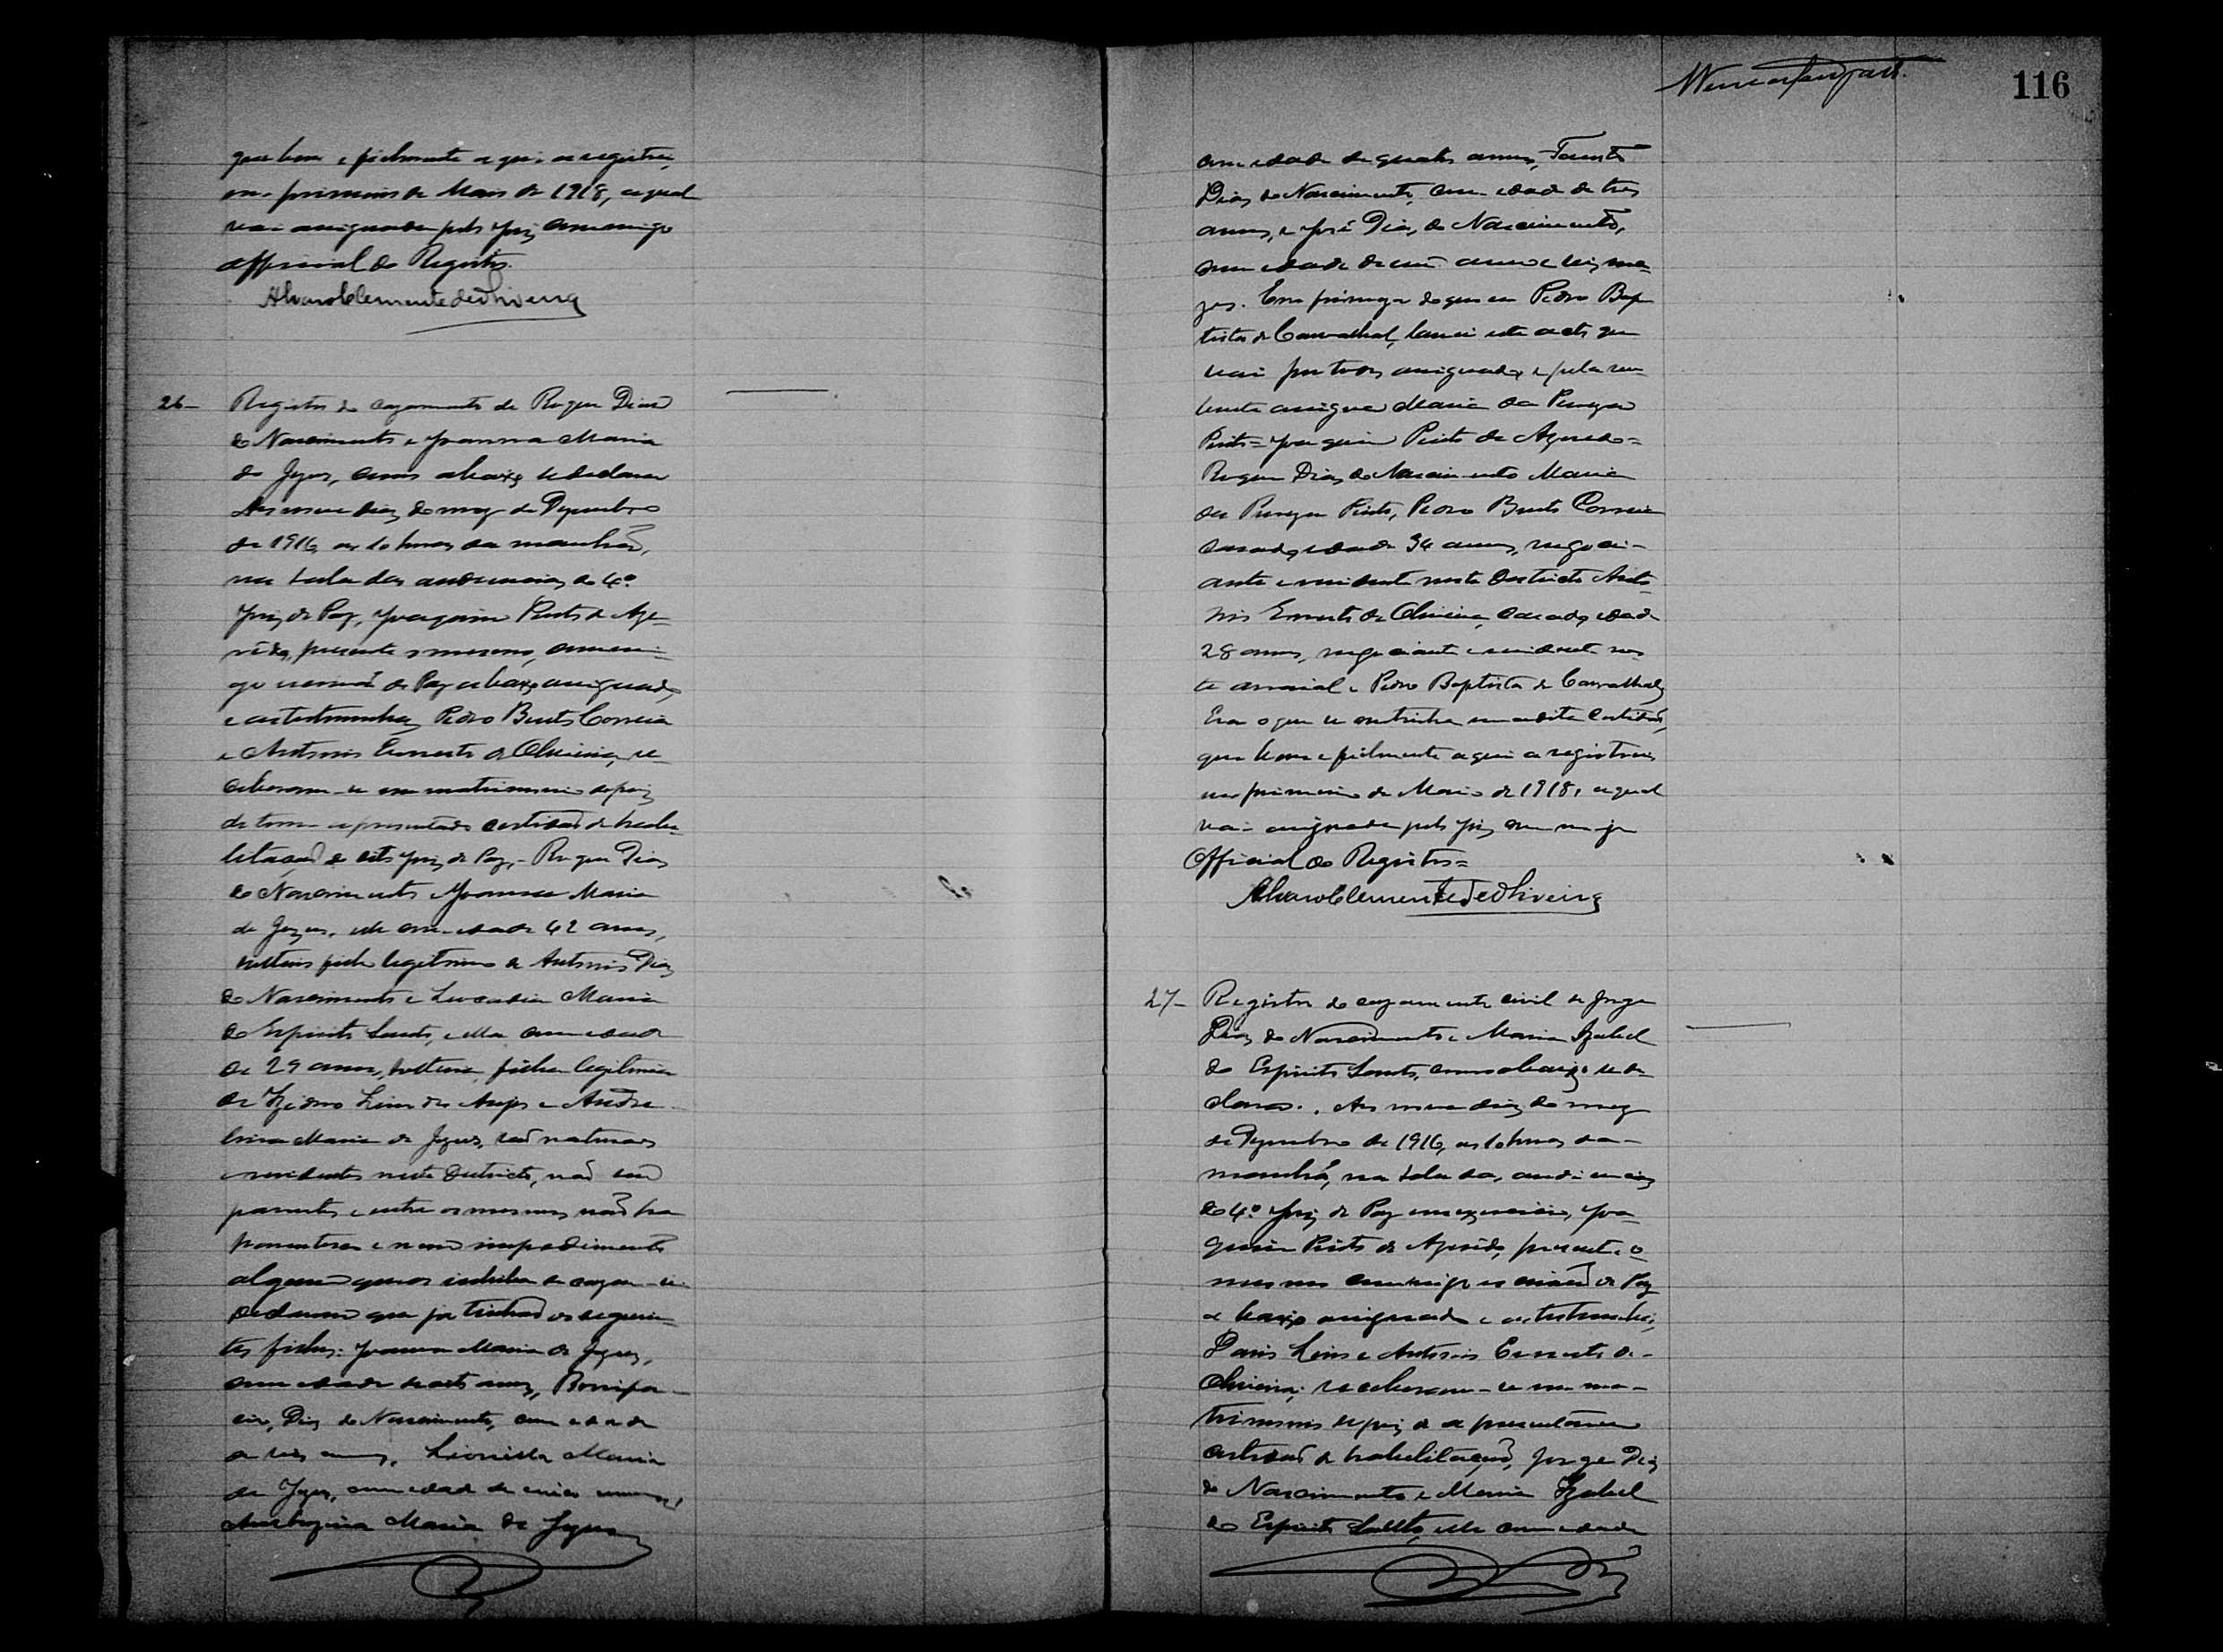 que bem e fielmente aqui a registrei,
no primeiro de Maio de 1918, a qual
vai assignada pelo Juiz commigo
official do Registro.
Alvaro Clemente de Oliveira
26- Registro do cazamento de Roque Dias
do Nascimento e Joanna Maria
de Jezus, como abaixo se declara
Aos nove dias do mez de Dezembro
de 1916, as 10 horas da manhã,
na sala das audiencias do 4º
Juiz de Paz, Joaquim Pinto de Aze-
vêdo, presente o mesmo, commi-
go escrivão de Paz abaixo assignado,
e as testemunhas Pedro Bento Correia
e Antonio Ernesto de Oliveira, re-
ceberam-se em matrimonio depois
de terem apresentado certidão de habi-
litação do dito Juiz de Paz,- Roque Dias
do Nascimento e Joanna Maria
de Jezus, elle com edade 42 annos,
solteiro filho legitimo de Antonio Dias
do Nascimento e Leocadia Maria
do Espirito Santo, e ella com edade
de 29 annos, solteira, filha legitima
de Izidoro Lino dos Anjos e Andre-
lina Maria de Jezus, são naturaes
e residentes neste Districto, não são
parentes e entre os mesmos não ha
parentesco e nem impedimento
algum que os inhiba de cazar-se
declaram que ja tinham os seguin-
tes filhos: Joanna Maria de Jezus,
com edade de oito annos, Bonifa-
cio, Dias do Nascimento, com edade
de seis annos, Leonilla Maria
de Jezus, com edade de cinco annos,
Maria de Jezus
116
com edade de quatro annos, Fausto
Dias do Nascimento, com edade de tres
annos, e José Dias do Nascimento,
com edade de um anno e seis me-
zes. Em firmeza do que eu Pedro Bap-
tista de Carvalhal, lavrei este acto que
vai por todos assignado, e pela nu-
bente assigna Maria da Pureza
Pinto= Joaquim Pinto de Azevedo=
Roque Dias do Nascimento Maria
da Pureza Pinto, Pedro Bento Correia
casado, edade 34 annos, negoci-
ante e residente neste Districto Anto-
nio Ernesto de Oliveira, casado, edade
28 annos, negociante e residente nes-
te arraial e Pedro Baptista de Carvalhal,
Era o que se continha em a dita certidão,
que bem e fielmente aqui a registrei
no primeiro de Maio de 1918, a qual
vai assignada pelo Juiz commigo
Official do Registro=
Alvaro Clemente de Oliveira
27- Registro do cazamento civil de Jorge
Dias do Nascimento e Maria Izabel
do Espirito Santo, como abaixo se de-
clara. Aos nove dias do mez
de Dezembro de 1916, as 10 horas da
manhã, na sala das audiencias
do 4º Juiz de Paz em exercicio, Joa-
quim Pinto de Azevêdo, presente o
mesmo commigo escrivão de Paz
abaixo assignado e as testemunhas,
Lins e Antonio Ernesto de
Oliveira; receberam-se em ma-
trimonio depois de apresentarem
certidão de habilitação, Jorge Dias
do Nascimento e Maria Izabel
do Espirito Santo, elle com edade